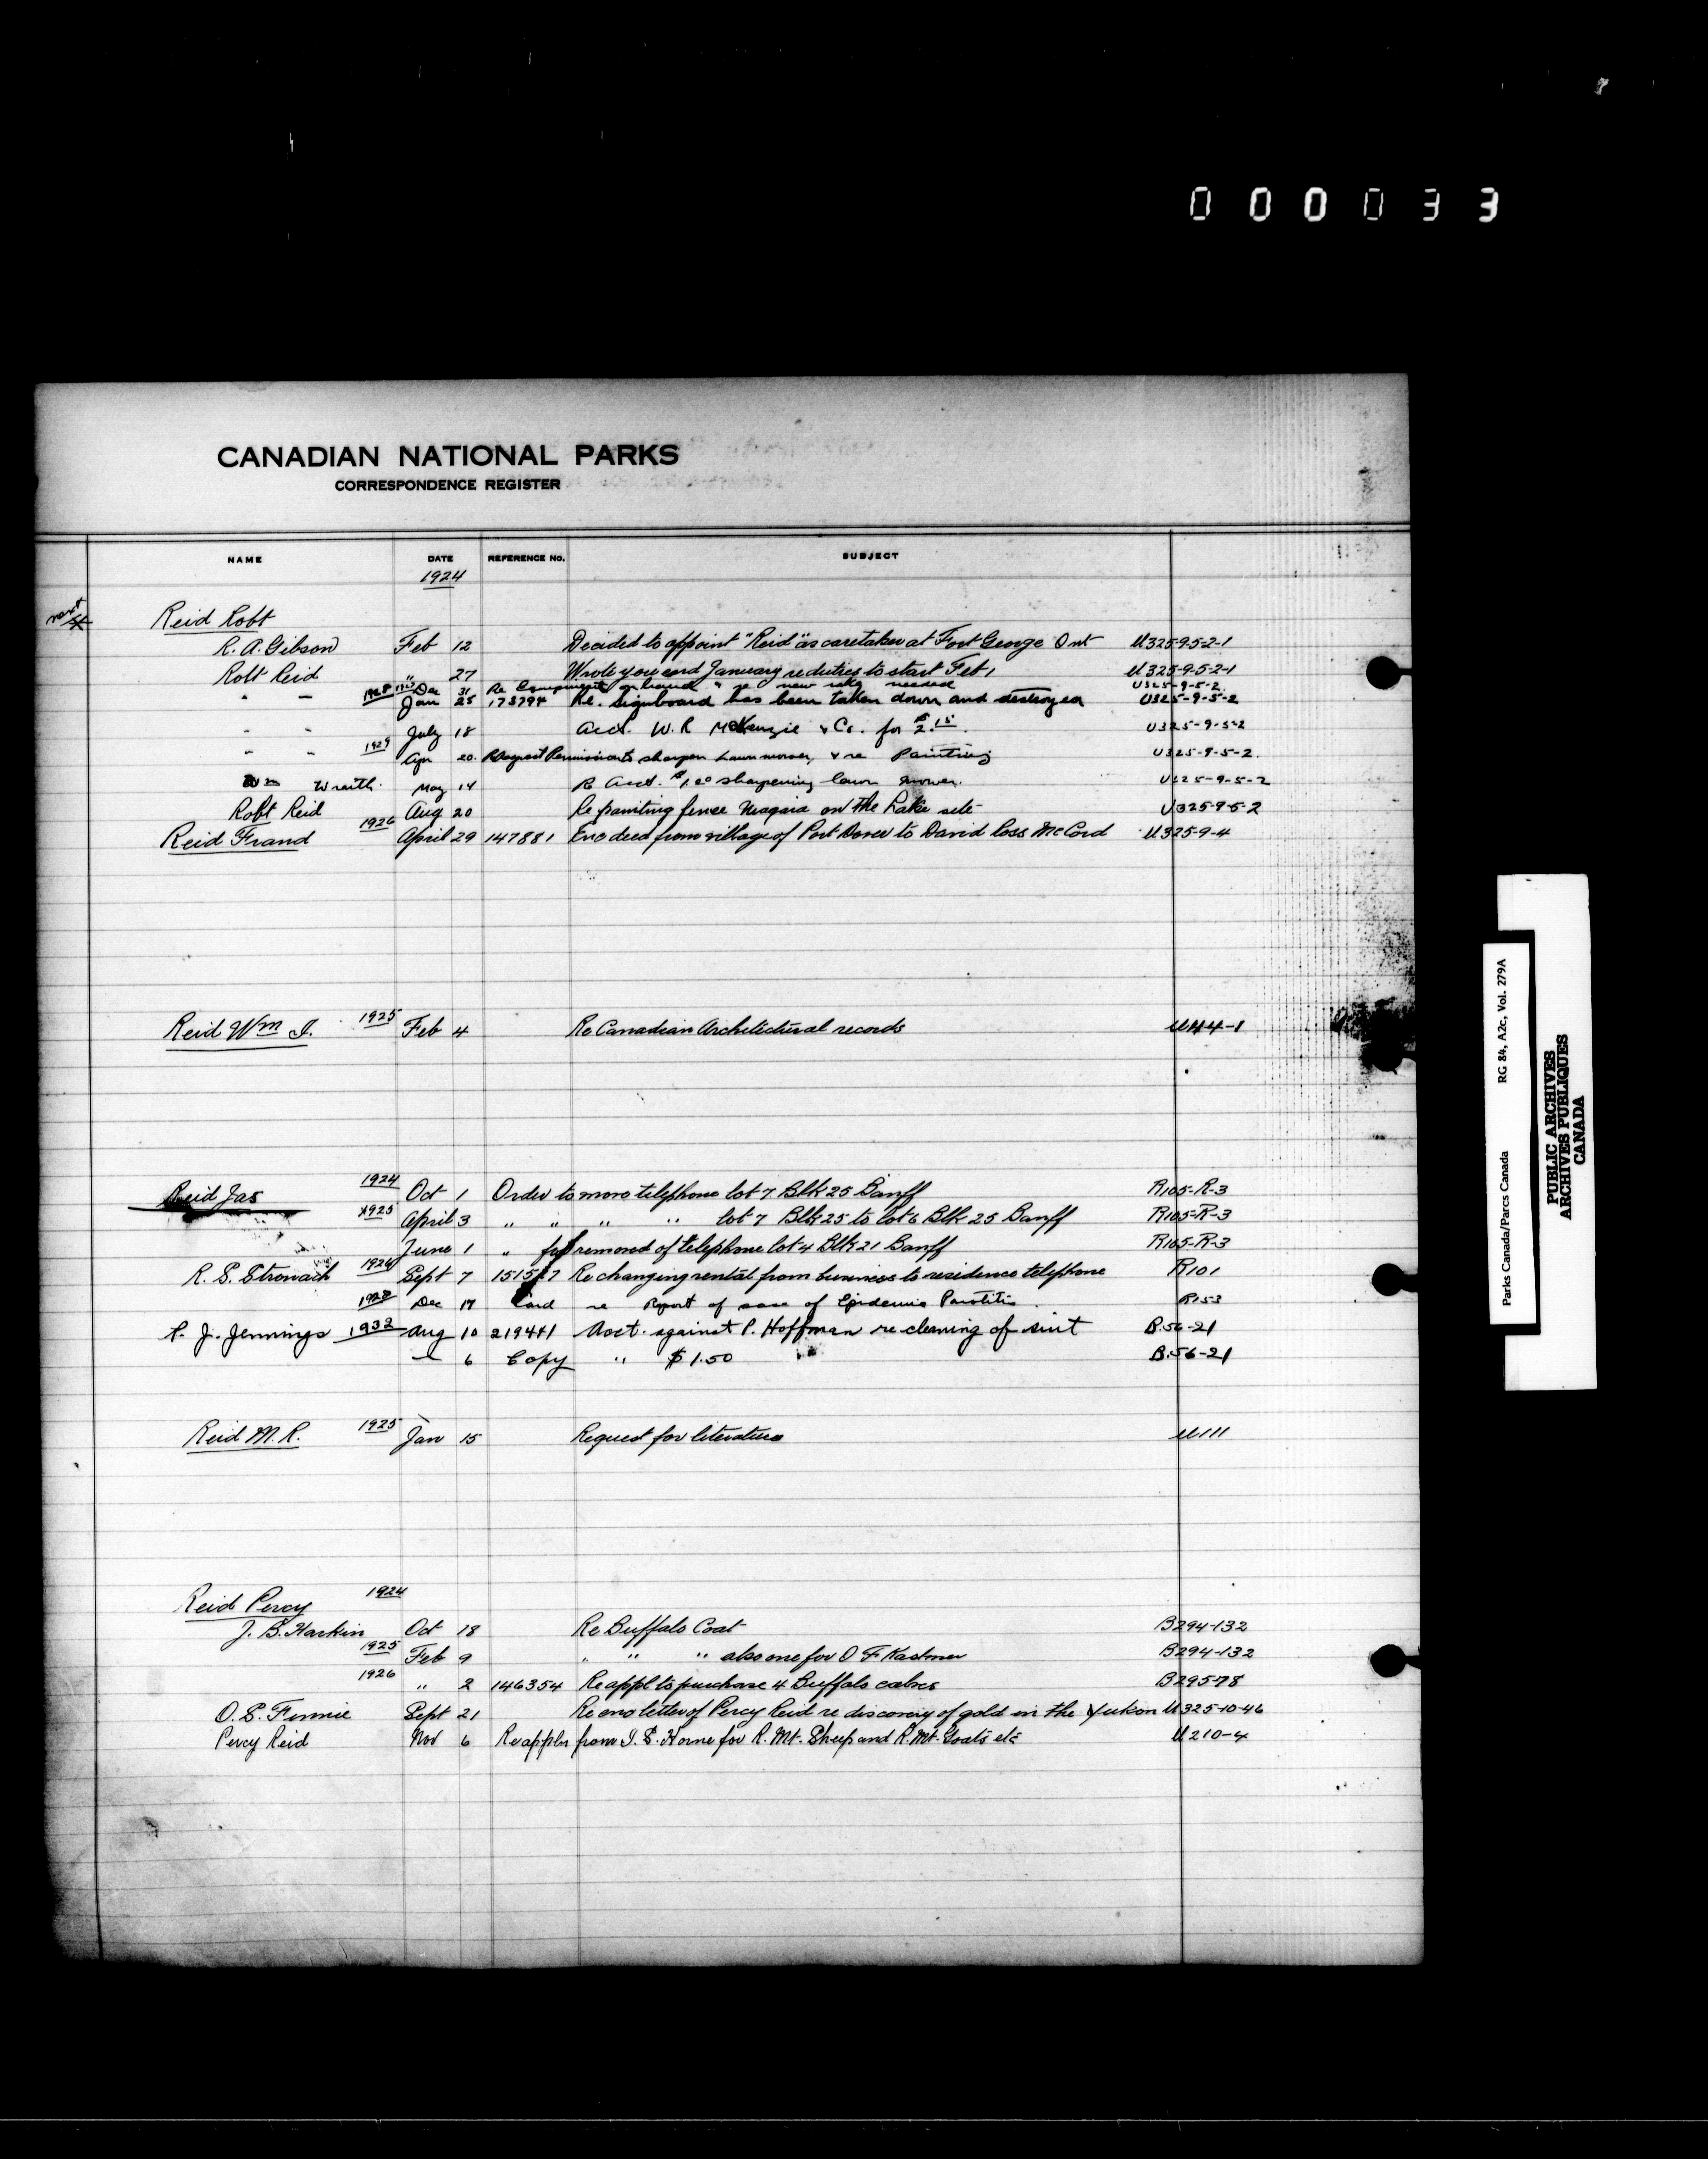 000033
CANADIAN NATIONAL PARKS
CORRESPONDENCE REGISTER
NAME DATE REFERENCE No. SUBJECT
1924
next
Reid Robt
R. A. Gibson Feb 12 Decided to appoint "Reid" as caretaker at Fort George Ont U325-9-5-2-1
Robt Reid " 27 Wrote you end January re duties to start Feb 1 U325-9-5-2-1
Dec 31 Re Equipment on hand " re new needed U325-9-5-2
" " 1928 Jan 25 173794 Re. Signboard has been taken down and destroyed U325-9-5-2
" " July 18 Acct. W. R McKenzie & Co. for $2.15. U325-9-5-2
" " 1929 Apr 20. Request Permission to sharpen Lawn mower, & re Painting U325-9-5-2.
Wm Wraith. May 14 Re Acct. $1.00 sharpening lawn mower. U325-9-5-2
Robt Reid Aug 20 Re painting fence Niagara on the Lake site U325-9-5-2
Reid Frand 1926 April 29 147881 Enc deed from village of Port Dover to David Ross McCord U325-9-4
Reid Wm I. 1925 Feb 4 Re Canadian Architectural records U44-1
Reid Jas 1924 Oct 1 Order to move telephone lot 7 Blk 25 Banff R105-R-3
1925 April 3 " " " " lot 7 Blk 25 to lot 6 Blk 25 Banff R105-R-3
June 1 " for removal of telephone lot 4 Blk 21 Banff R105-R-3
R. S. Stronach 1926 Sept 7 Re changing rental from business to residence telephone R101
1928 Dec 17 Card re Report of case of Epidemic Parotitis. R153
P. J. Jennings 1932 Aug 10 219441 Acct. against P. Hoffman re cleaning of suit B.56-21
" 6 Copy " $1.50 B.56-21
Reid M. R. 1925 Jan 15 Request for literature U111
Reid Percy 1924
J. B. Harkin Oct 18 Re Buffalo Coat B294-132
1925 Feb 9 " " " also one for O. F. B294-132
1926 " 2 146354 Re appl to purchase 4 Buffalo calves B295-78
O. S. Finnie Sept 21 Re enc letter of Percy Reid re discovery of gold in the Yukon U325-10-46
Percy Reid Nov 6 Re appln from I. S. Horne for R. Mt. Sheep and R. Mt. Goats etc U210-4
Parks Canada/Parcs Canada RG 84, A2c, Vol. 279A
PUBLIC ARCHIVES
ARCHIVES PUBLIQUES
CANADA